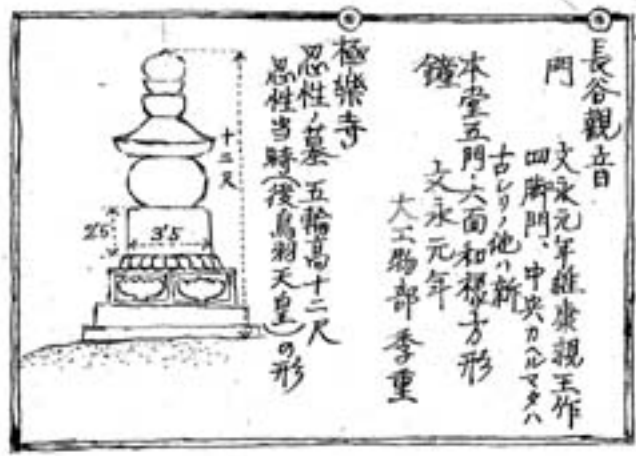 長谷觀音
門 文永元年維康親王作
四脚門、中央カヘルマタハ
古シリノ他ハ新
本堂五門・六面和様方形
鐘 文永元年
大工物部季重
極樂寺
忍性ノ墓 五輪高十二尺
忍性当時(後鳥羽天皇)の形
十二尺
2'5
3'5